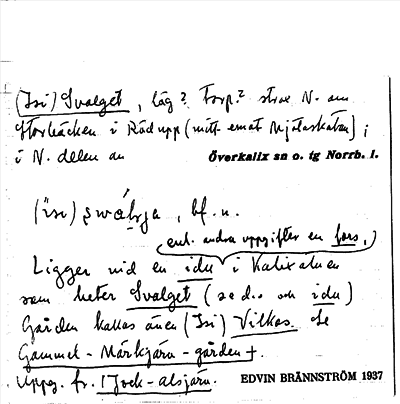 (Isi) Svalget, läg? Torp? strax N. om
Storbäcken i Räd upp (mitt emot Mjölaskatan);
i N. delen av Överkalix sn o. tg Norrb. l.
(isi) , bf. n.
(enl. andra uppgifter en fors.)
Ligger vid en idu i Kalixälven
som heter Svalget (se d.o. och idu)
Gården kallas även (Isi) Vilkas. Se
Gammel-Märkjärn-gården +.
Uppg. fr. 
EDVIN BRÄNNSTRÖM 1937